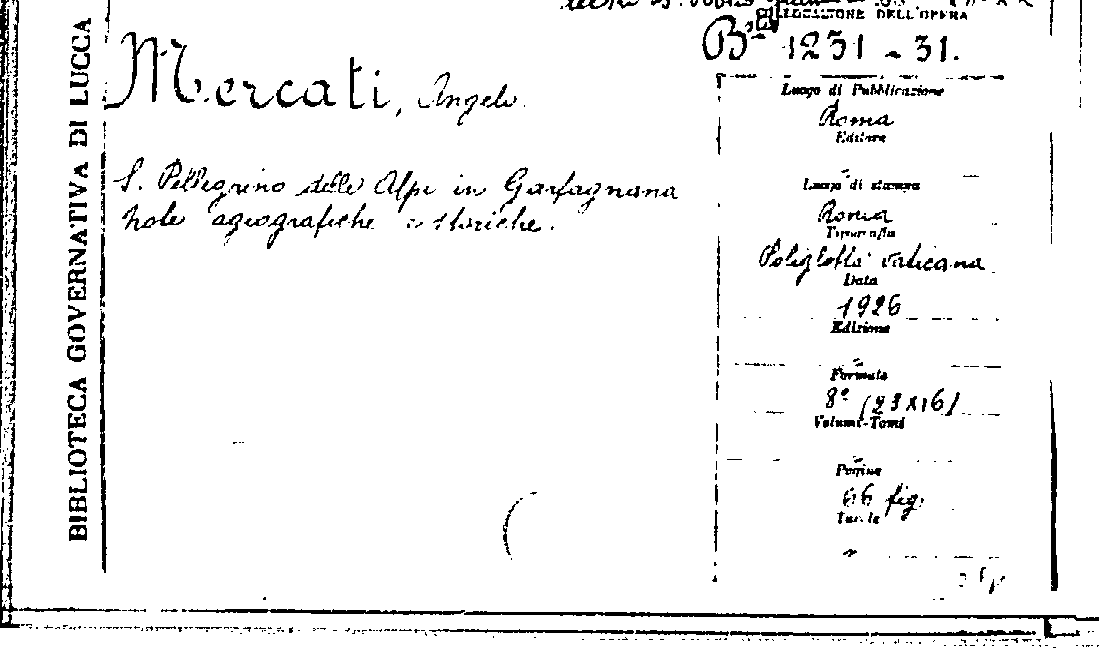 BIBLIOTECA GOVERNATIVA DI LUCCA
Mercati, Angelo
S. Pellegrino delle Alpi in Garfagnana
note agiografiche e storiche.
DELL'OPERA
Bª 1231 - 31.
Luogo di Pubblicazione
Roma
Editore
Luogo di stampa
Roma
Tipografia
Poliglotta vaticana
Data
1926
Edizione
Formato
8° (23x16)
Volumi-Tomi
Pagine
66 fig.
Tavole